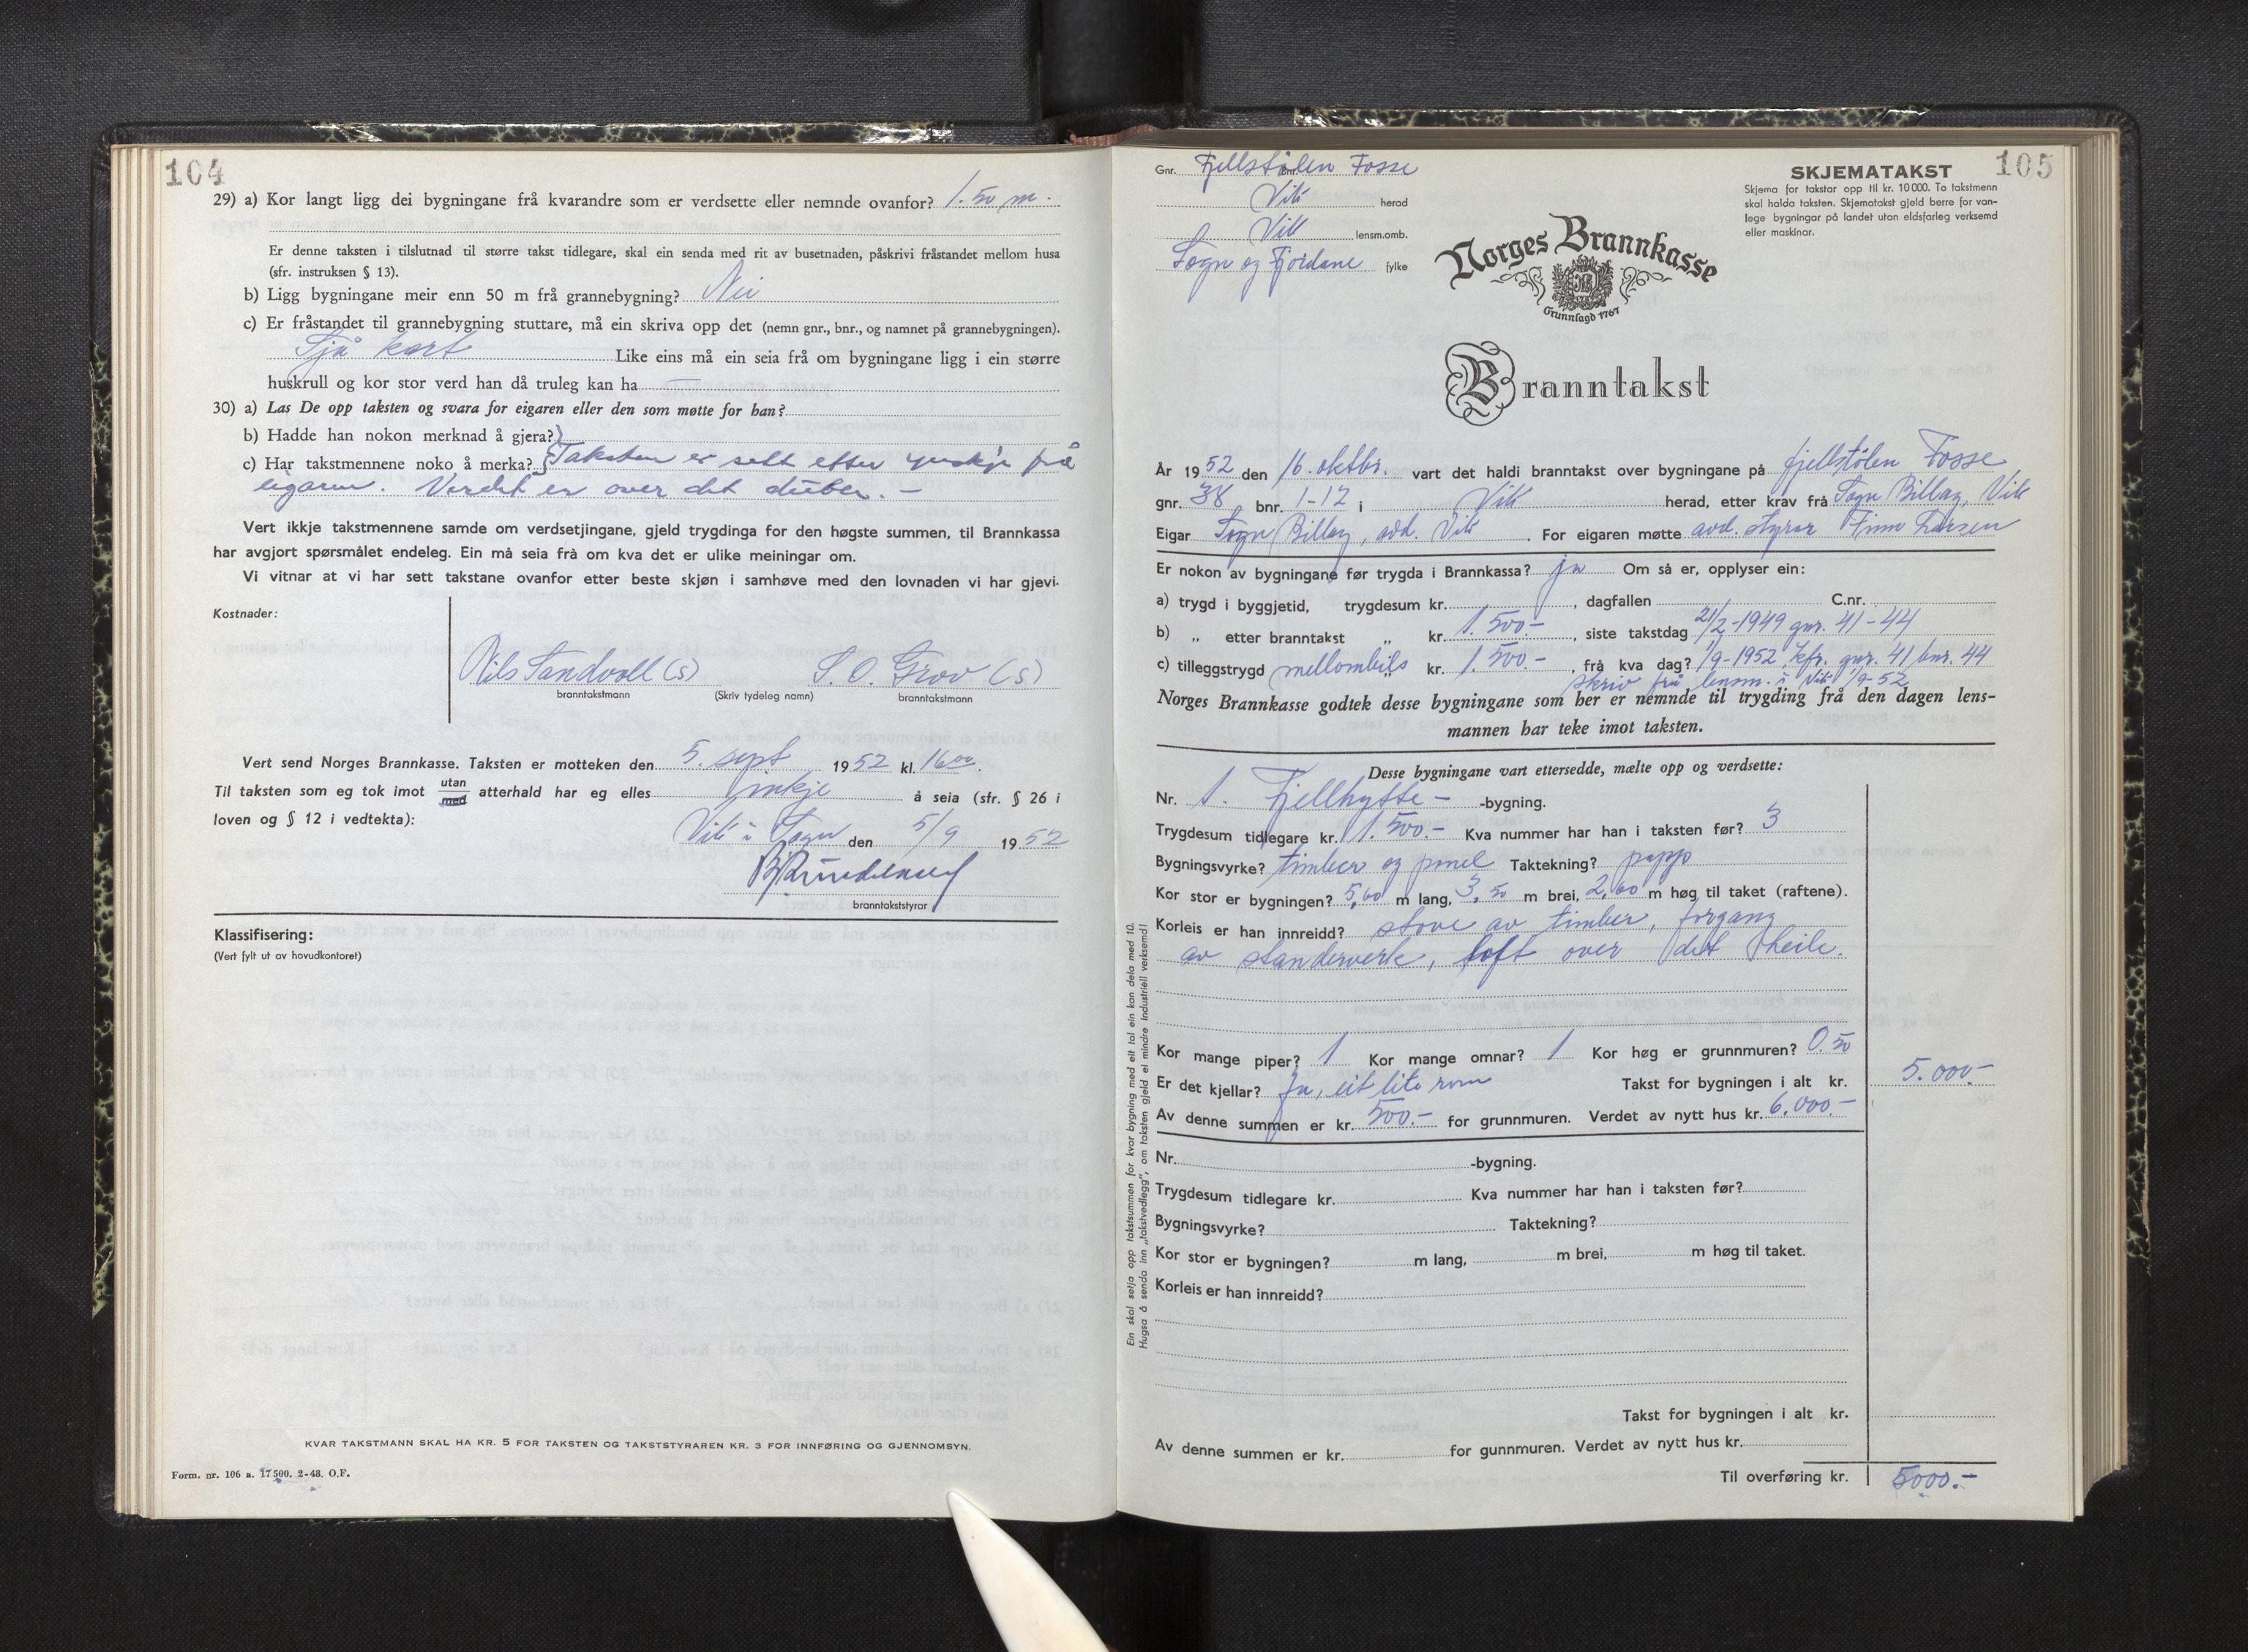 104
29) a) Kor langt ligg dei bygningane frå kvarandre som er verdsette eller nemnde ovanfor? 1.50 m.
Er denne taksten i tilslutnad til større takst tidlegare, skal ein senda med rit av busetnaden, påskrivi fråstandet mellom husa
(sfr. instruksen § 13).
b) Ligg bygningane meir enn 50 m frå grannebygning? Nei
c) Er fråstandet til grannebygning stuttare, må ein skriva opp det (nemn gnr., bnr., og namnet på grannebygningen).
Sjå kart Like eins må ein seia frå om bygningane ligg i ein større
huskrull og kor stor verd han då truleg kan ha —
30) a) Las De opp taksten og svara for eigaren eller den som møtte for han?
b) Hadde han nokon merknad å gjera?
c) Har takstmennene noko å merka? Taksten er sett etter ynskje frå
eigaren. Verdet er over det dubee. —
Vert ikkje takstmennene samde om verdsetjingane, gjeld trygdinga for den høgste summen, til Brannkassa
har avgjort spørsmålet endeleg. Ein må seia frå om kva det er ulike meiningar om.
Vi vitnar at vi har sett takstane ovanfor etter beste skjøn i samhøve med den lovnaden vi har gjevi.
Kostnader:
Nils Sandvoll (s) S. O. Grov (s)
branntakstmann (Skriv tydeleg namn) branntakstmann
Vert send Norges Brannkasse. Taksten er motteken den 5. sept 1952 kl. 16⁰⁰.
Til taksten som eg tok imot utan/med atterhald har eg elles inkje å seia (sfr. § 26 i
loven og § 12 i vedtekta):
Vik i Sogn den 5/9 1952
branntakststyrar
Klassifisering:
(Vert fylt ut av hovudkontoret)
KVAR TAKSTMANN SKAL HA KR. 5 FOR TAKSTEN OG TAKSTSTYRAREN KR. 3 FOR INNFØRING OG GJENNOMSYN.
Form. nr. 106 a. 17500. 2-48. O.F.
105
Gnr. Fjellstølen Bnr. Fosse
Vik herad
Vik lensm.omb.
Sogn og Fjordane fylke
SKJEMATAKST
Skjema for takstar opp til kr. 10 000. To takstmenn
skal halda taksten. Skjematakst gjeld berre for van-
lege bygningar på landet utan eldsfarleg verksemd
eller maskinar.
Norges Brannkasse
Grunnlagd 1767
Branntakst
År 1952 den 16. oktbr. vart det haldi branntakst over bygningane på fjellstølen Fosse
gnr. 38 bnr. 1-12 i Vik herad, etter krav frå Sogn Billag, Vik
Eigar Sogn Billag, avd. Vik. For eigaren møtte avd. styrar Finn Larsen
Er nokon av bygningane før trygda i Brannkassa? ja Om så er, opplyser ein:
a) trygd i byggjetid, trygdesum kr. , dagfallen C.nr.
b) „ etter branntakst „ kr. 1.500.-, siste takstdag 21/2-1949 gnr. 41-44
c) tilleggstrygd mellombils „ kr. 1.500.-, frå kva dag? 1/9-1952, kfr. gnr. 41 bnr. 44
skriv frå lensm. i Vik 1/9-52
Norges Brannkasse godtek desse bygningane som her er nemnde til trygding frå den dagen lens-
mannen har teke imot taksten.
Desse bygningane vart ettersedde, mælte opp og verdsette:
Nr. 1. Fjellhytte- -bygning.
Trygdesum tidlegare kr. 1.500.- Kva nummer har han i taksten før? 3
Bygningsvyrke? timber og panel Taktekning? papp
Kor stor er bygningen? 5,00 m lang, 3,50 m brei, 2,60 m høg til taket (raftene).
Korleis er han innreidd? stove av timber, forgang
av standerverk, loft over det heile.
Kor mange piper? 1 Kor mange omnar? 1 Kor høg er grunnmuren? 0.50
Er det kjellar? Ja, eit lite rom Takst for bygningen i alt kr. 5.000-
Av denne summen er kr. 500.- for grunnmuren. Verdet av nytt hus kr. 6.000.-
Nr. -bygning.
Trygdesum tidlegare kr. Kva nummer har han i taksten før?
Bygningsvyrke? Taktekning?
Kor stor er bygningen? m lang, m brei, m høg til taket.
Korleis er han innreidd?
Takst for bygningen i alt kr.
Av denne summen er kr. for gunnmuren. Verdet av nytt hus kr.
Til overføring kr. 5000.-
Ein skal setja opp takstsummen for kvar bygning med eit tal ein kan dela med 10.
Hugsa å senda inn „takstvedlegg", om taksten gjeld ei mindre industriell verksemd!